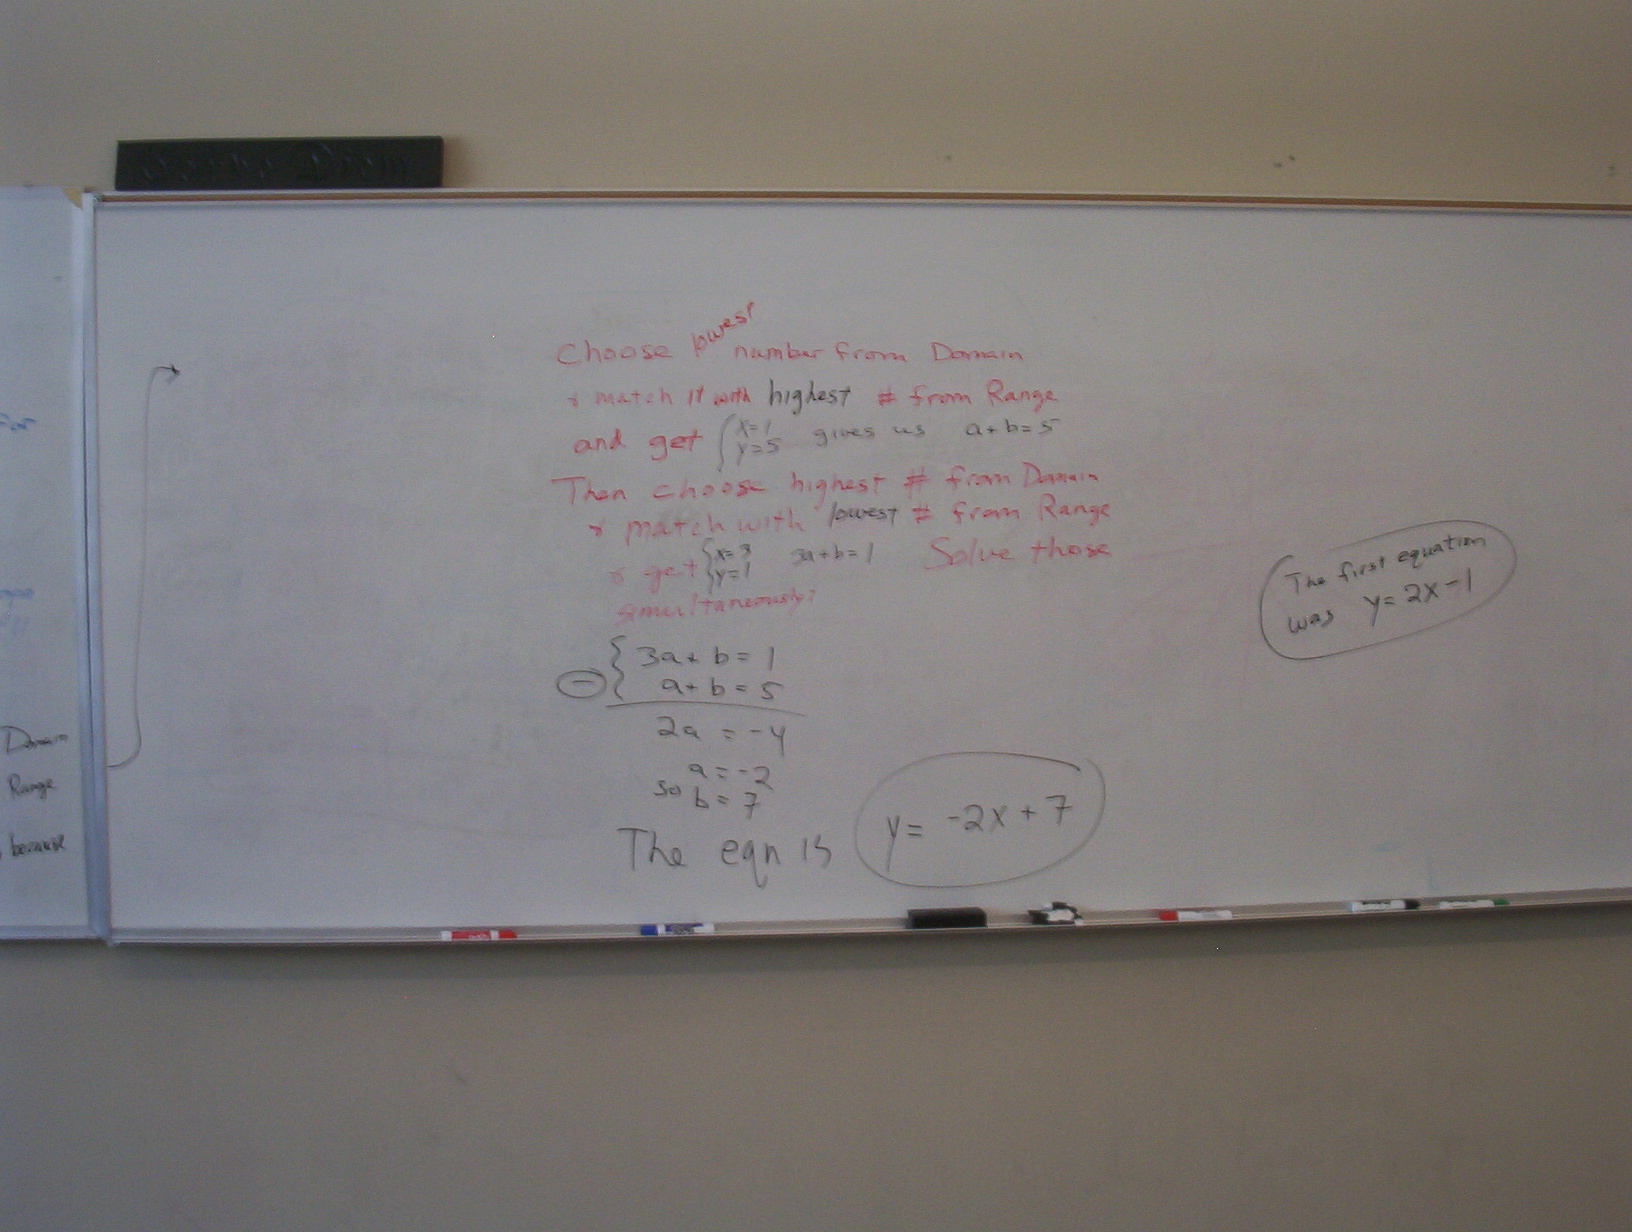 Carpe Diem
Choose lowest number from Domain
& match it with highest # from Range
and get { x=1 y=5 gives us a+b=5
Then choose highest # from Domain
& match with lowest # from Range
& get { x=3 y=1 3a+b=1 Solve those
simultaneously:
{ 3a+b=1
− a+b=5
2a = -4
a=-2
so b=7
The eqn is y = -2x+7
The first equation
was y=2x-1
For
Domain
Range
because